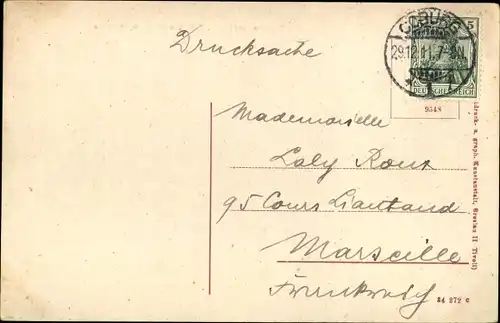 COBURG
5
29.12.11. 7-8N.
DEUTSCHES REICH
Drucksache
9348
Mademoiselle
Laly Roux
95 Cours Lieutaud
Marseille
Frankreich
graph. Kunstanstalt, Breslau II (Tivoli)
84 272 c